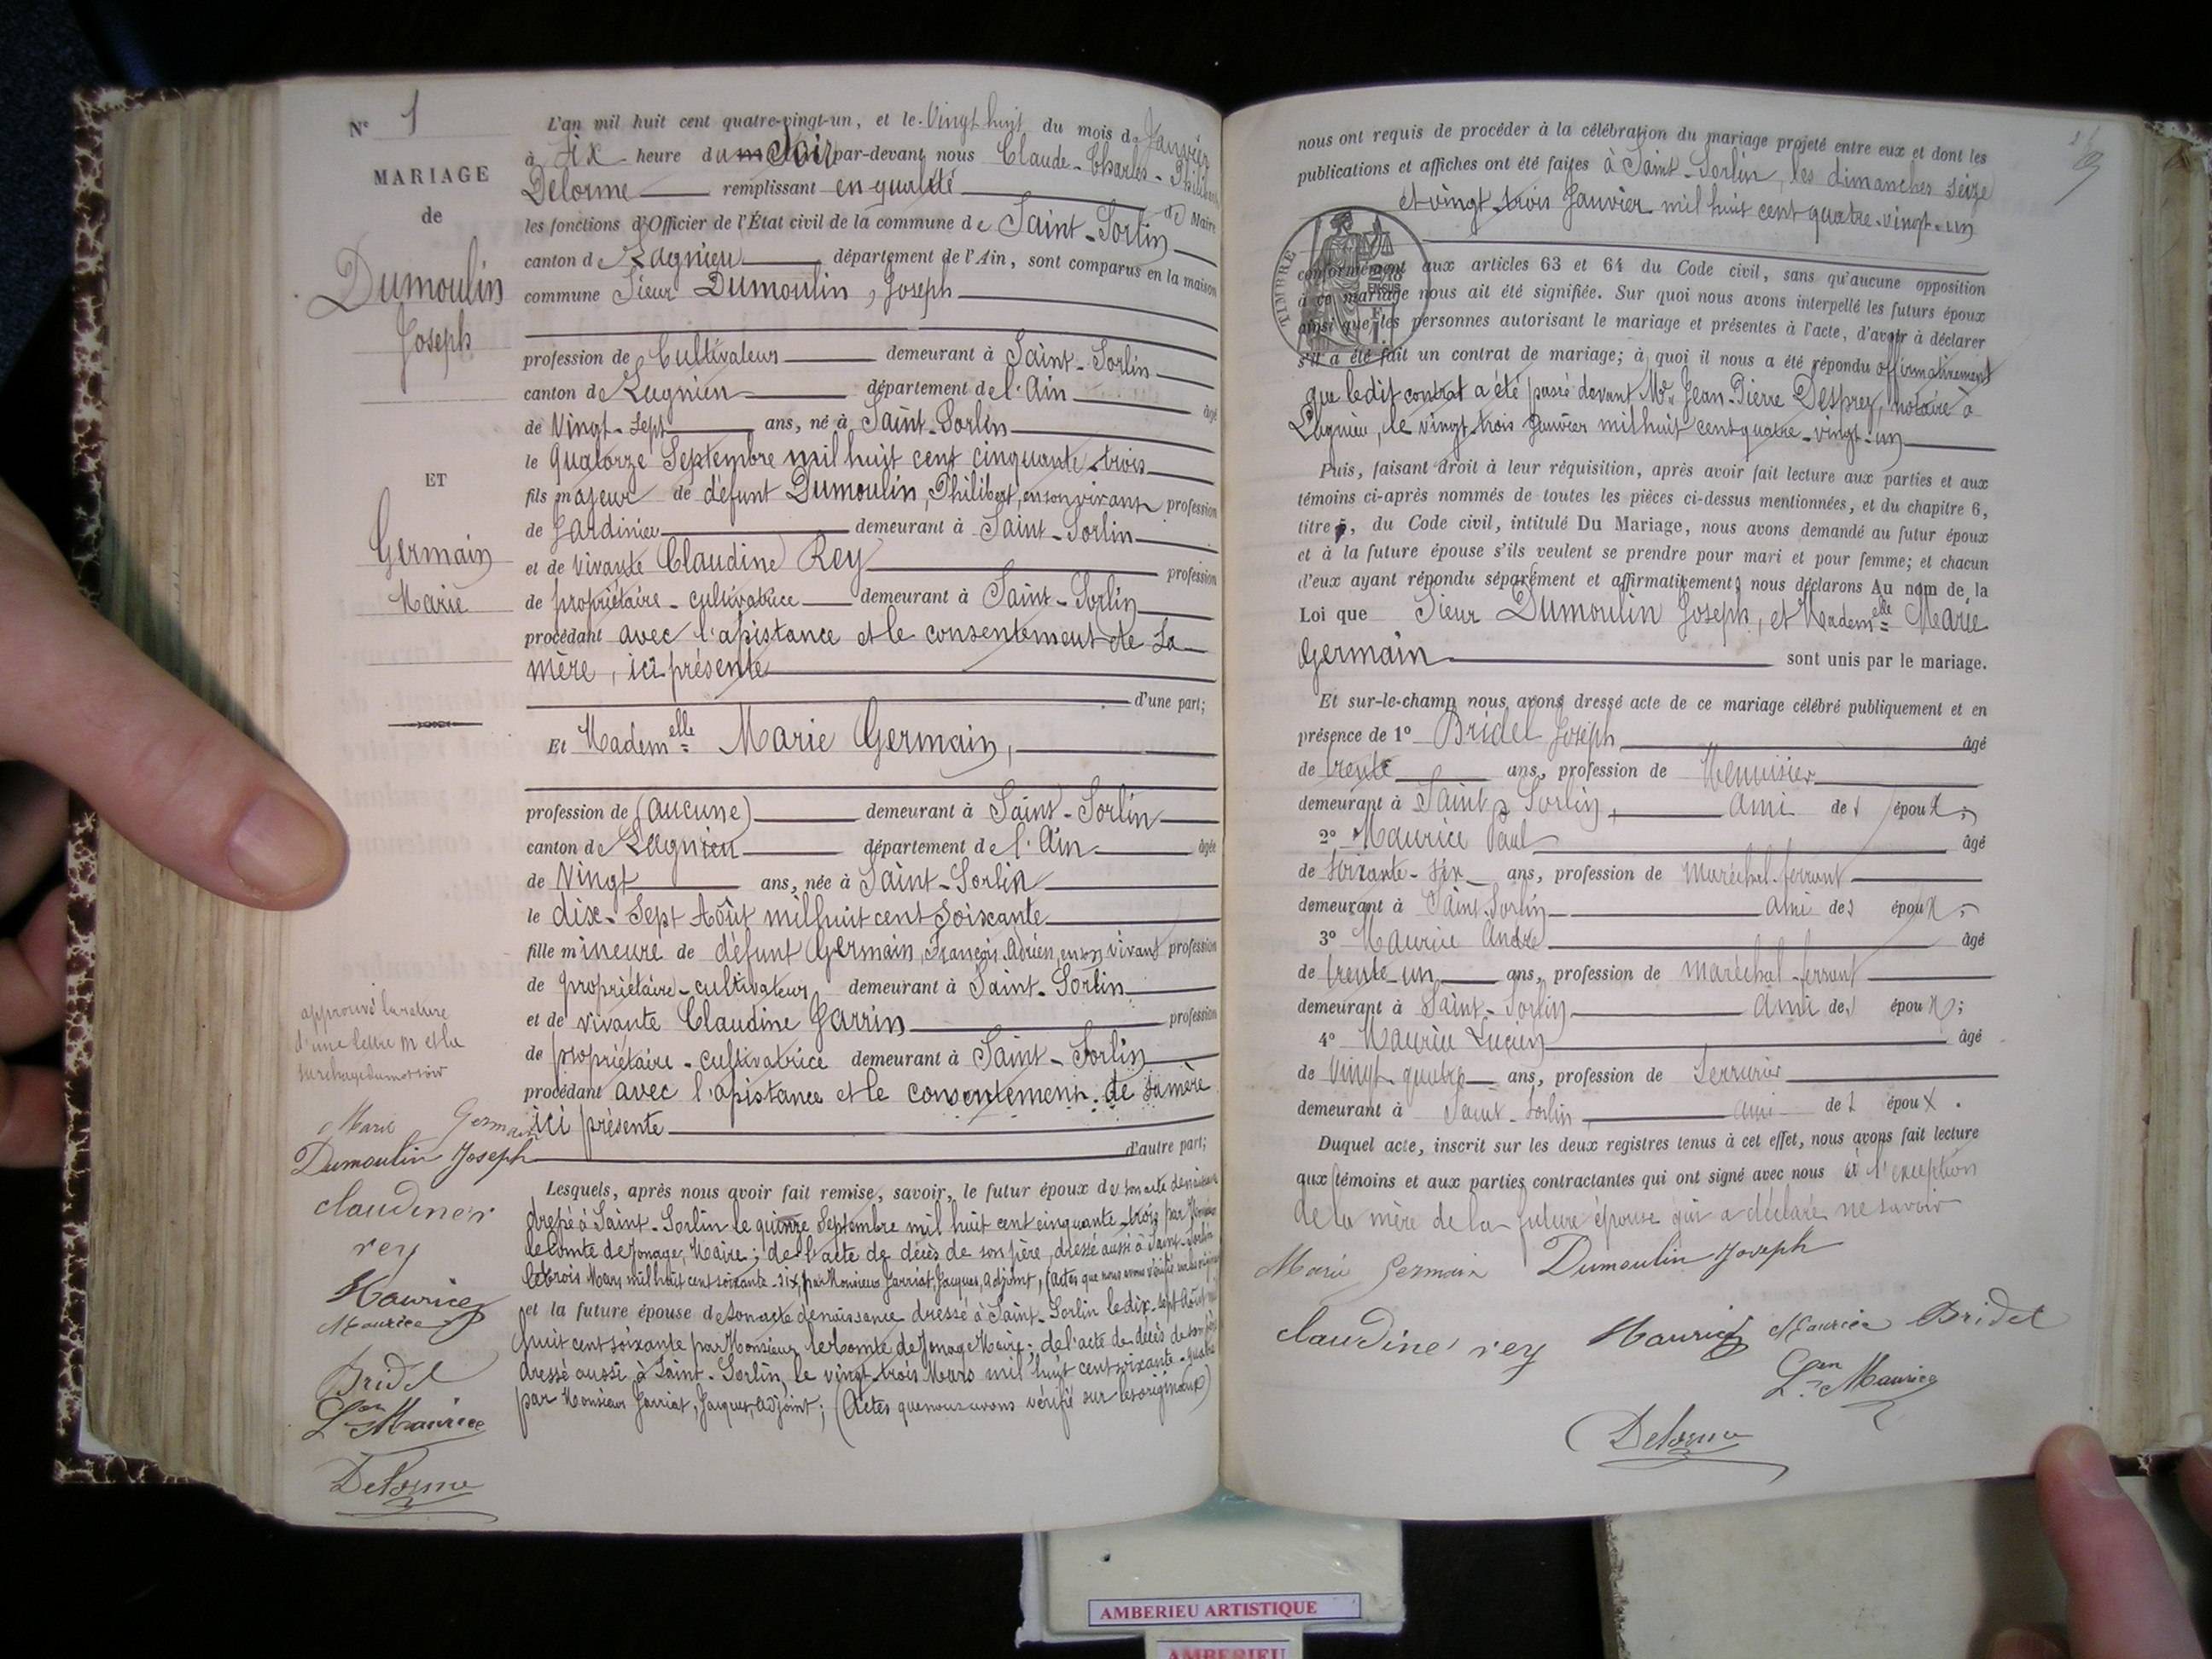 N° 1
MARIAGE
de
Dumoulin
Joseph
ET
Germain
Marie
approuvé la rature
d'une lettre m et la
surchage du mot soir
Marie Germain
Dumoulin Joseph
claudine rey
Maurice
Maurice
Bridel
Lien Maurice
Delorme
L'an mil huit cent quatre-vingt-un, et le Vingt huit du mois de Janvier
à Six heure du soir par-devant nous Claude-Charles-Philibert
Delorme remplissant en qualité de Maire
les fonctions d'Officier de l'État civil de la commune de Saint-Sorlin
canton de Lagnieu département de l'Ain, sont comparus en la maison
commune Sieur Dumoulin, Joseph
profession de Cultivateur demeurant à Saint-Sorlin
canton de Lagnieu département de l'Ain âgé
de Vingt-sept ans, né à Saint-Sorlin
le quatorze Septembre mil huit cent cinquante-trois
fils majeur de défunt Dumoulin, Philibert, en son vivant profession
de Jardinier demeurant à Saint-Sorlin
et de vivante Claudine Rey profession
de propriétaire-cultivatrice demeurant à Saint-Sorlin
procédant avec l'assistance et le consentement de sa
mère, ici présente
d'une part;
Et Madem.elle Marie Germain,
profession de (aucune) demeurant à Saint-Sorlin
canton de Lagnieu département de l'Ain âgée
de Vingt ans, née à Saint-Sorlin
le dix-sept Août mil huit cent soixante
fille mineure de défunt Germain, François-Adrien, en son vivant profession
de propriétaire-cultivateur demeurant à Saint-Sorlin
et de vivante Claudine Jarrin profession
de propriétaire-cultivatrice demeurant à Saint-Sorlin
procédant avec l'assistance et le consentement de sa mère
ici présente
d'autre part;
Lesquels, après nous avoir fait remise, savoir, le futur époux de son acte de naissance
dressé à Saint-Sorlin le quinze Septembre mil huit cent cinquante-trois par Monsieur
le Comte de Jonage, Maire; de l'acte de décès de son père, dressé aussi à Saint-Sorlin
le trois Mars mil huit cent soixante-six, par Monsieur Jarriat, Jacques, adjoint, (actes que nous avons vérifié sur les
et la future épouse de son acte de naissance dressé à Saint-Sorlin le dix-sept Août mil
huit cent soixante par Monsieur le Comte de Jonage Maire; de l'acte de décès de son père
dressé aussi à Saint-Sorlin, le vingt-trois Mars mil huit cent soixante-quatre
par Monsieur Jarriat, Jacques, adjoint; (Actes que nous avons vérifié sur les originaux)
nous ont requis de procéder à la célébration du mariage projeté entre eux et dont les
publications et affiches ont été faites à Saint-Sorlin, les dimanches seize
et vingt-trois Janvier mil huit cent quatre-vingt-un
TIMBRE
conformément aux articles 63 et 64 du Code civil, sans qu'aucune opposition
à ce mariage nous ait été signifiée. Sur quoi nous avons interpellé les futurs époux
ainsi que les personnes autorisant le mariage et présentes à l'acte, d'avoir à déclarer
s'il a été fait un contrat de mariage; à quoi il nous a été répondu affirmativement
que ledit contrat a été passé devant Me Jean-Pierre Desprez, notaire à
Lagnieu, le vingt-trois Janvier mil huit cent quatre-vingt-un
Puis, faisant droit à leur réquisition, après avoir fait lecture aux parties et aux
témoins ci-après nommés de toutes les pièces ci-dessus mentionnées, et du chapitre 6,
titre 5, du Code civil, intitulé Du Mariage, nous avons demandé au futur époux
et à la future épouse s'ils veulent se prendre pour mari et pour femme; et chacun
d'eux ayant répondu séparément et affirmativement, nous déclarons Au nom de la
Loi que Sieur Dumoulin Joseph, et Madem.elle Marie
Germain sont unis par le mariage.
Et sur-le-champ nous avons dressé acte de ce mariage célébré publiquement et en
présence de 1° Bridel Joseph âgé
de trente ans, profession de Menuisier
demeurant à Saint-Sorlin, ami des époux;
2° Maurice Paul âgé
de soixante-six ans, profession de maréchal-ferrant
demeurant à Saint-Sorlin ami des époux;
3° Maurice André âgé
de trente-un ans, profession de maréchal-ferrant
demeurant à Saint-Sorlin ami des époux;
4° Maurice Lucien âgé
de Vingt-quatre ans, profession de Serrurier
demeurant à Saint-Sorlin, ami des époux.
Duquel acte, inscrit sur les deux registres tenus à cet effet, nous avons fait lecture
aux témoins et aux parties contractantes qui ont signé avec nous à l'exception
de la mère de la future épouse qui a déclaré ne savoir
Marie Germain Dumoulin Joseph
claudine rey Maurice Maurice Bridel
Lien Maurice
Delorme
AMBERIEU ARTISTIQUE
AMBERIEU